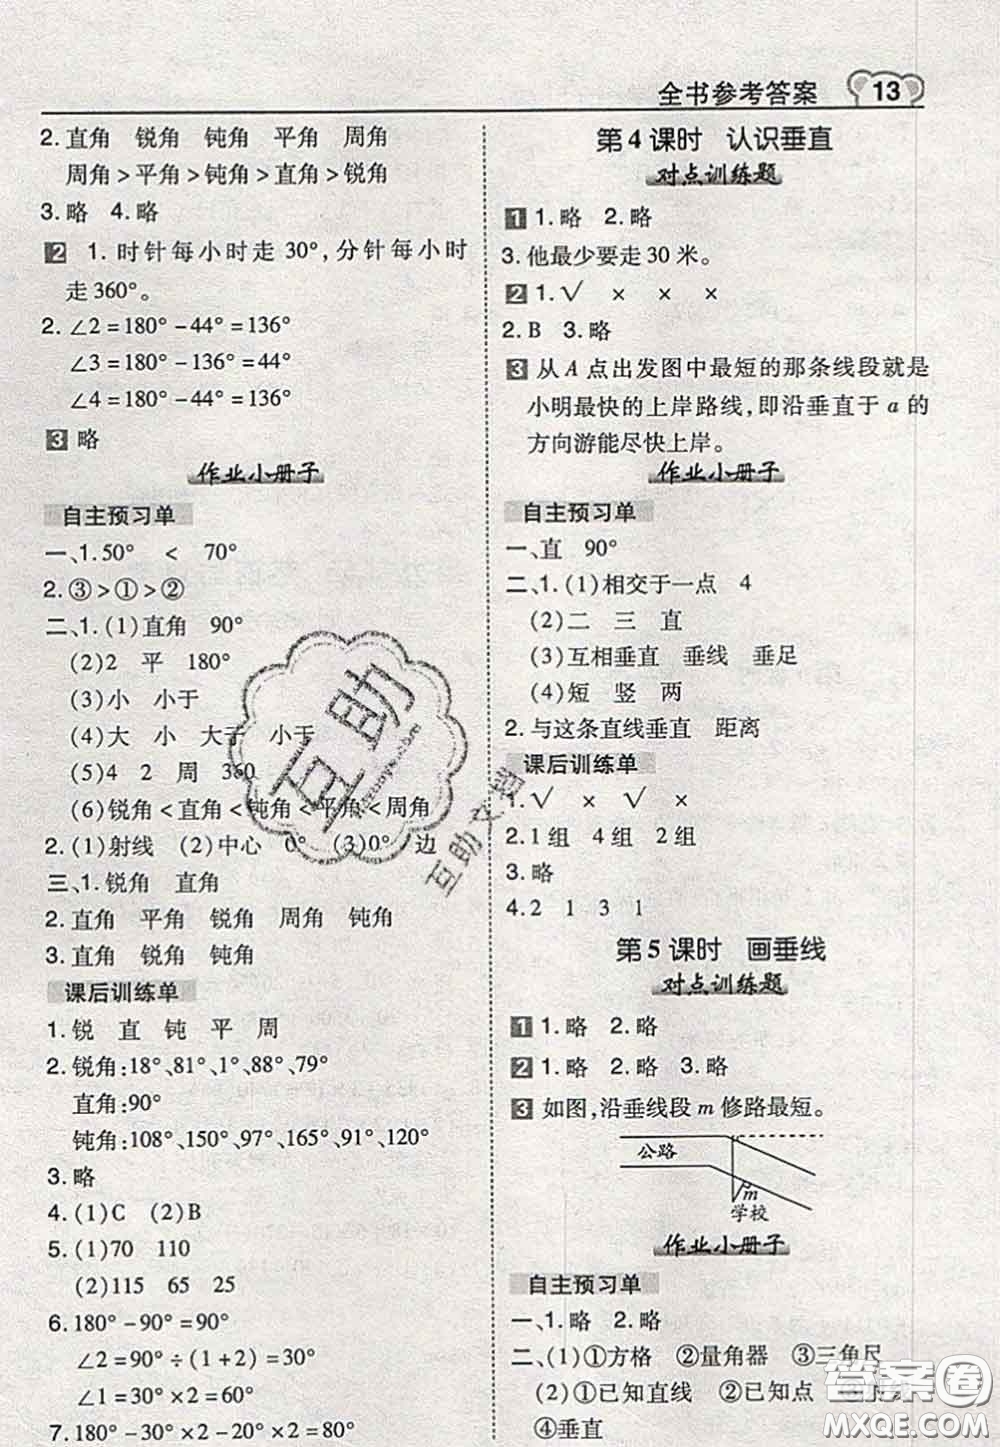 全书参考答案 13
2. 直角 锐角 钝角 平角 周角
周角>平角>钝角>直角>锐角
3. 略 4. 略
2 1. 时针每小时走30°,分针每小时
走360°。
2. ∠2=180°-44°=136°
∠3=180°-136°=44°
∠4=180°-44°=136°
3 略
作业小册子
自主预习单
一、1. 50° < 70°
2. ③>①>②
二、1. (1)直角 90°
(2)2 平 180°
(3)小 小于
(4)大 小 大于 小于
(5)4 2 周 360
(6)锐角<直角<钝角<平角<周角
2. (1)射线 (2)中心 0° (3)0° 边
三、1. 锐角 直角
2. 直角 平角 锐角 周角 钝角
3. 直角 锐角 钝角
课后训练单
1. 锐 直 钝 平 周
2. 锐角:18°、81°、1°、88°、79°
直角:90°
钝角:108°、150°、97°、165°、91°、120°
3. 略
4. (1)C (2)B
5. (1)70 110
(2)115 65 25
6. 180°-90°=90°
∠2=90°÷(1+2)=30°
∠1=30°×2=60°
7. 180°-30°×2-20°×2=80°
第4课时 认识垂直
对点训练题
1 1. 略 2. 略
3. 他最少要走30米。
2 1. √ × × ×
2. B 3. 略
3 从A点出发图中最短的那条线段就是
小明最快的上岸路线,即沿垂直于a的
方向游能尽快上岸。
作业小册子
自主预习单
一、直 90°
二、1. (1)相交于一点 4
(2)二 三 直
(3)互相垂直 垂线 垂足
(4)短 竖 两
2. 与这条直线垂直 距离
课后训练单
1. √ × √ ×
2. 1组 4组 2组
3. 略
4. 2 1 3 1
第5课时 画垂线
对点训练题
1 1. 略 2. 略
2 1. 略 2. 略 3. 略
3 如图,沿垂线段m修路最短。
公路
m
学校
作业小册子
自主预习单
一、1. 略 2. 略
二、(1)①方格 ②量角器 ③三角尺
(2)①已知直线 ②已知点 ③
④垂直
互助
互助文
答案圈
MXQE.COM